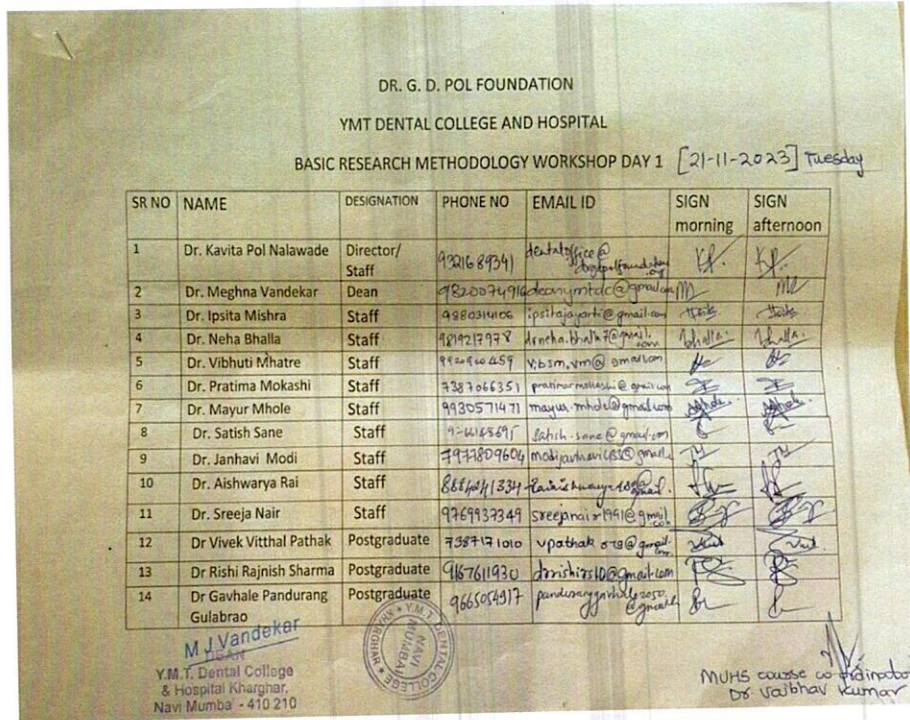 DR. G. D. POL FOUNDATION
YMT DENTAL COLLEGE AND HOSPITAL
BASIC RESEARCH METHODOLOGY WORKSHOP DAY 1 [21-11-2023] Tuesday
SR NO NAME DESIGNATION PHONE NO EMAIL ID SIGN morning SIGN afternoon
1 Dr. Kavita Pol Nalawade Director/ Staff 9321689341 dentaloffice@
2 Dr. Meghna Vandekar Dean 9820074916 deanymtdc@gmail.com
3 Dr. Ipsita Mishra Staff 9880314106
4 Dr. Neha Bhalla Staff 9819217978 drneha.bhalla7@gmail.com Bhalla. Bhalla.
5 Dr. Vibhuti Mhatre Staff vibsm.vm@gmail.com
6 Dr. Pratima Mokashi Staff 7387066351
7 Dr. Mayur Mhole Staff 9930571471 mayur.mhole@gmail.com
8 Dr. Satish Sane Staff satish.sane@gmail.com
9 Dr. Janhavi Modi Staff 7977809604
10 Dr. Aishwarya Rai Staff
11 Dr. Sreeja Nair Staff 9769937349 sreejanair1991@gmail.com
12 Dr Vivek Vitthal Pathak Postgraduate 7387171010
13 Dr Rishi Rajnish Sharma Postgraduate 9167611930
14 Dr Gavhale Pandurang Gulabrao Postgraduate 9665054917
M J Vandekar
DEAN
Y.M.T. Dental College
& Hospital Kharghar,
Navi Mumbai - 410 210
Y.M.T. DENTAL COLLEGE
KHARGHAR
NAVI MUMBAI
MUHS course co-ordinator
Dr Vaibhav Kumar